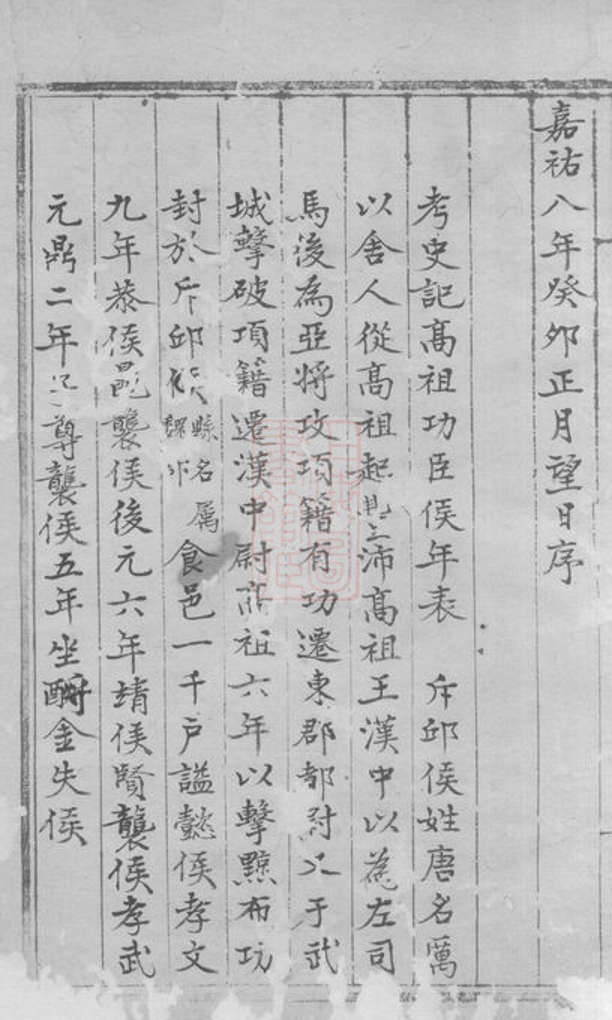 嘉祐八年癸卯正月望日序
考史記高祖功臣侯年表　斥邱侯姓唐名厲
以舍人從高祖起沛高祖王漢中以為左司
馬後為亞將攻項籍有功遷東郡都尉于武
城擊破項籍遷漢中尉高祖六年以擊黥布功
封於斥邱侯縣名屬食邑一千戶謚懿侯孝文
九年恭侯襲侯後元六年靖侯賢襲侯孝武
元鼎二年尊襲侯五年坐酎金失侯